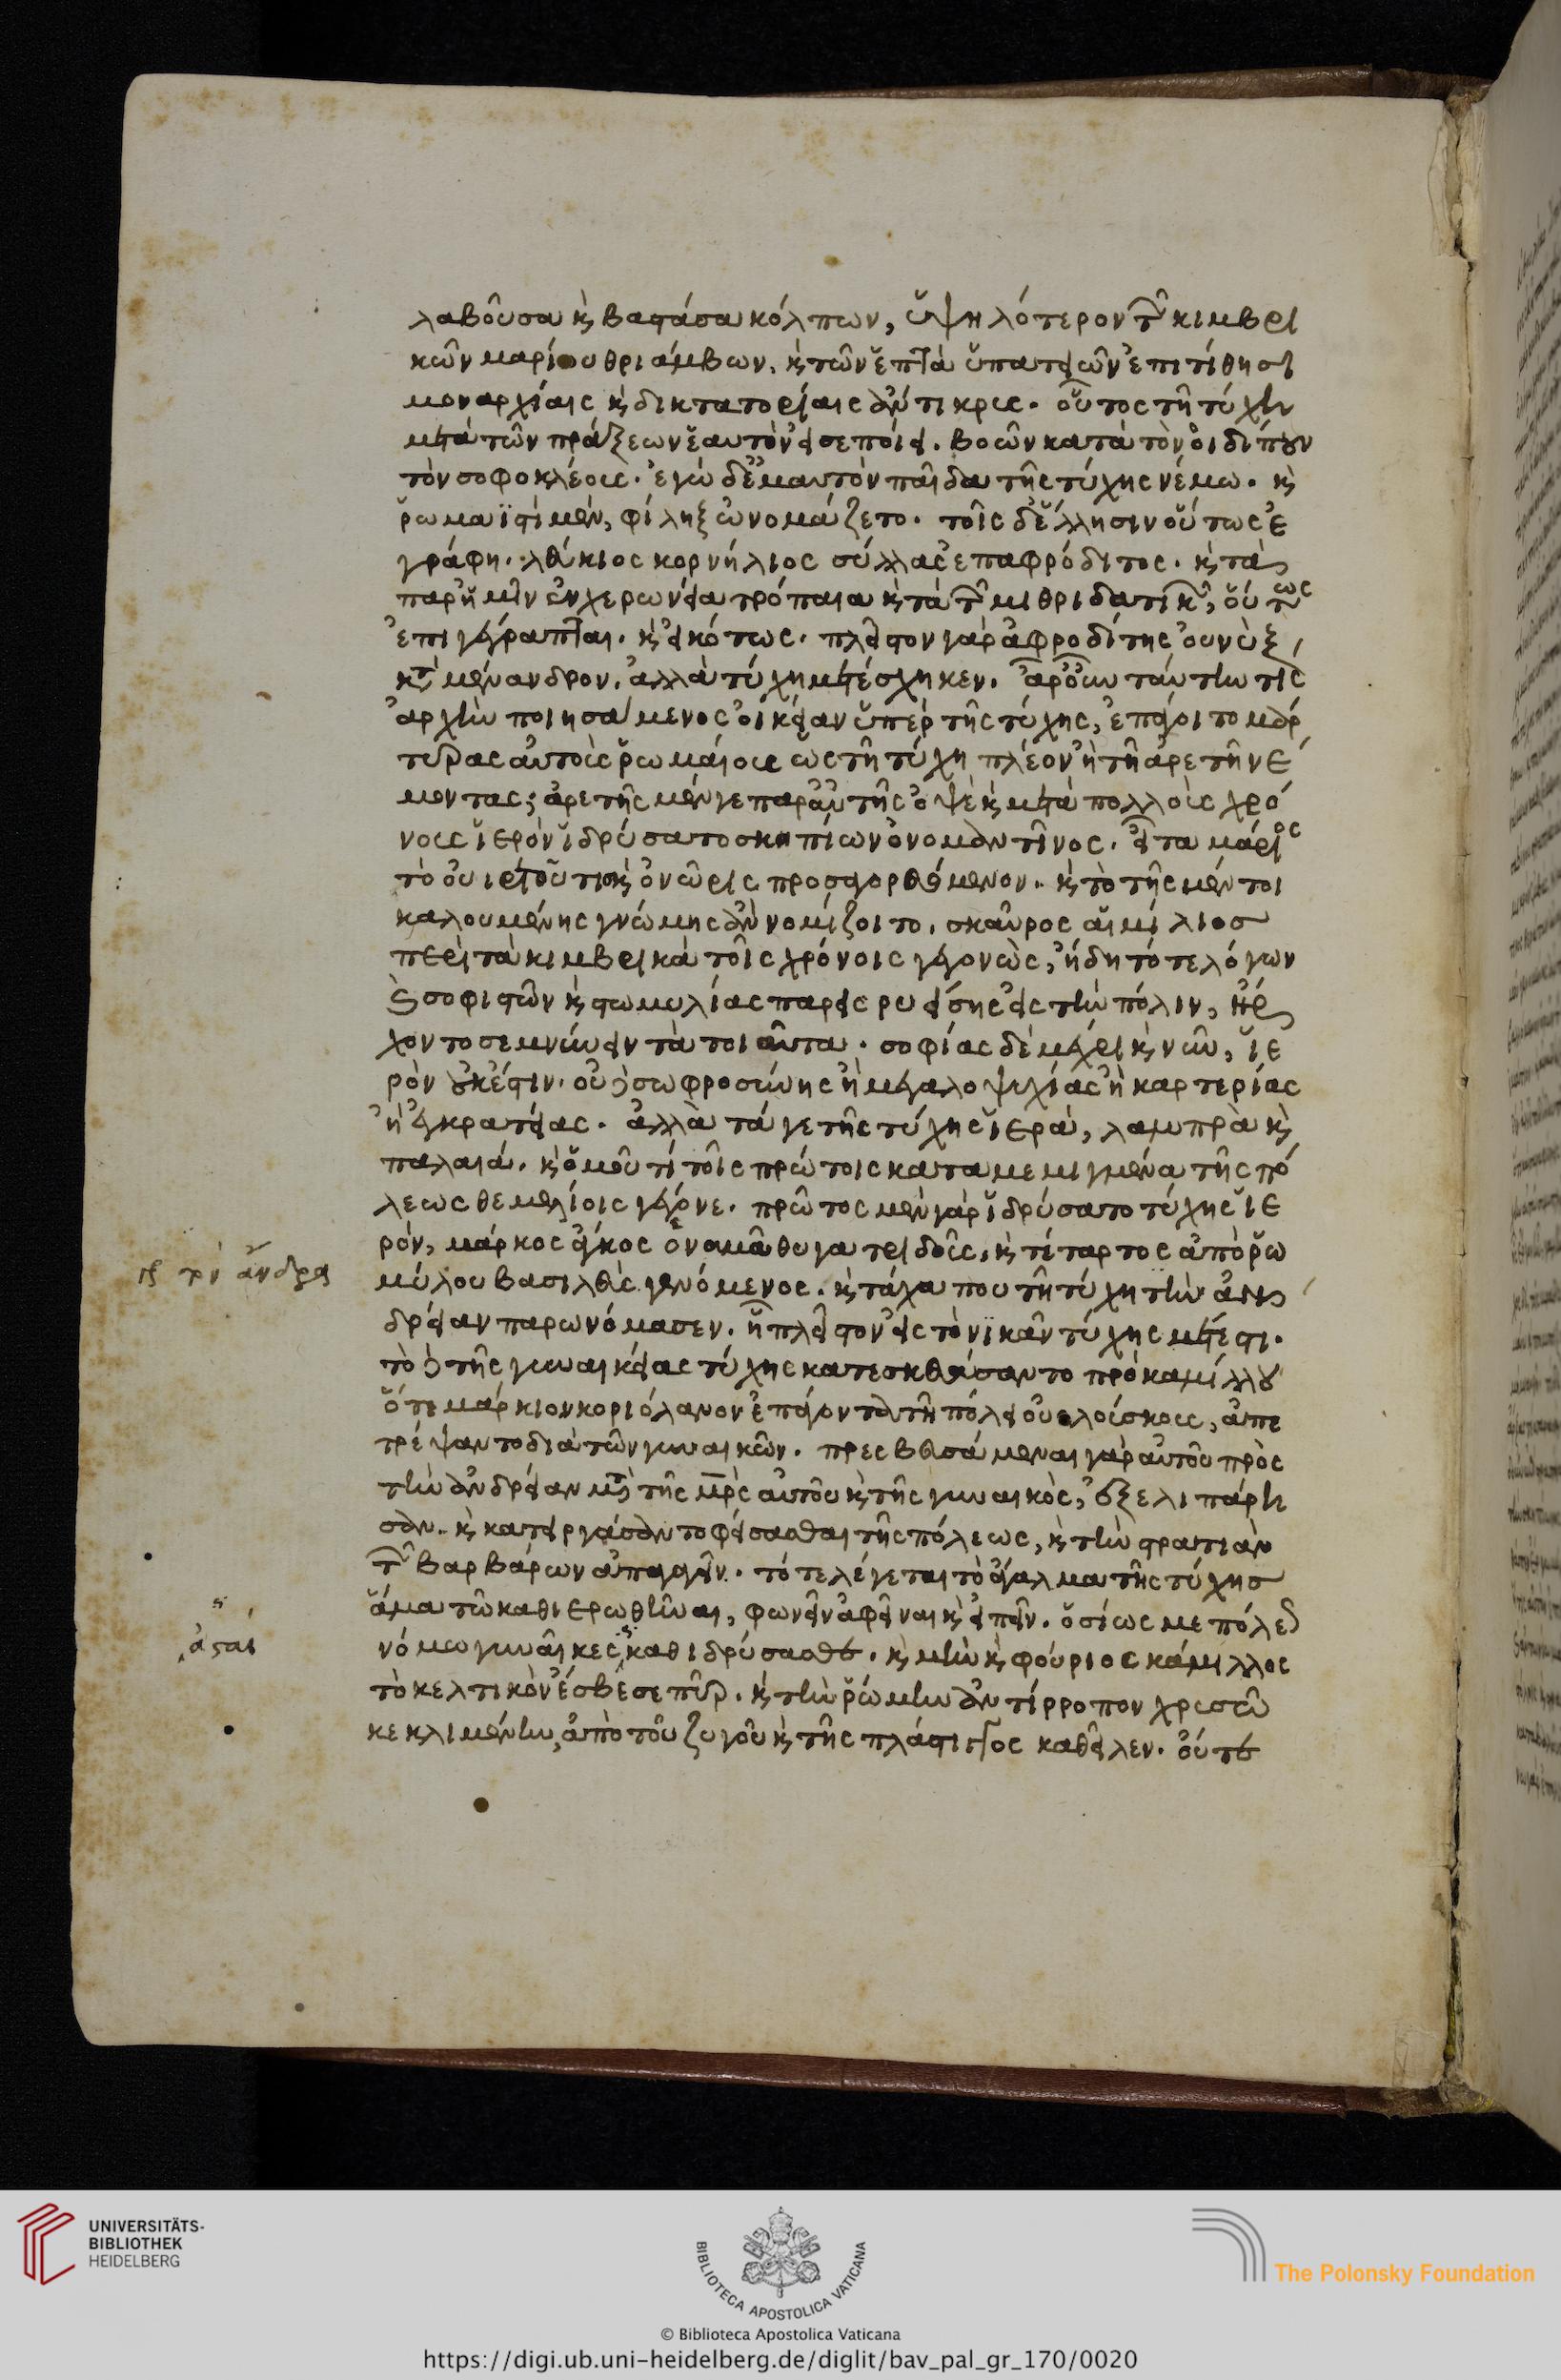 λαβοῦσα κὶ βαστάσα κόλπων, ὑψηλότερον τῶν κιμβρι
κῶν μαρίου θριάμβων. κὶ τῶν ἑπτὰ ὑπατειῶν ἐπιτίθησι
μοναρχίαις κὶ δικτατορίαις ἄντικρυς. οὗτος τῆ τύχη
μετὰ τῶν πράξεων ἑαυτὸν εἰσεποίει. βοῶν κατὰ τὸν οἰδίπουν
τὸν σοφοκλέους. ἐγὼ δ' ἐμαυτὸν παῖδα τῆς τύχης νέμω. κὶ
ῥωμαϊστὶ μὲν, φίληξ ὠνομάζετο. τοῖς δ' ἕλλησιν οὕτως ἐ
γράφη. λεύκιος κορνήλιος σύλλας ἐπαφρόδιτος. κὶ τὰ
παρ' ἡμῖν ἐν χερωνεία τρόπαια κὶ τὰ τῶν μιθριδατικῶν, οὕτως
ἐπιγέγραπται. κὶ εἰκότως. πλεῖστον γὰρ ἀφροδίτης οὐ νὺξ,
κατὰ μένανδρον, ἀλλὰ τύχη μετέσχηκεν. ἆρ' οὖν ταύτην τις
ἀρχὴν ποιησάμενος οἰκείαν ὑπὲρ τῆς τύχης, ἐπάγοιτο μάρ
τυρας αὐτοὺς ῥωμαίους ὡς τῆ τύχη πλέον ἢ τῆ ἀρετῆ νέ
μοντας; ἀρετῆς μέν γε παρ' αὐτῆς ὀψὲ κὶ μετὰ πολλοὺς χρό
νους ἱερὸν ἱδρύσατο σκηπίων ὁ νομαντῖνος. εἶτα μάριος
τὸ οὐιρτοῦτίς κὶ ὀνῶρις προσαγορευόμενον. κὶ τὸ τῆς μέντοι
καλουμένης γνώμης ἂν νομίζοιτο, σκαῦρος αἰμίλιος
περὶ τὰ κιμβρικὰ τοῖς χρόνοις γεγονὼς, ἤδη τότε λόγων
κὶ σοφιστῶν κὶ στωμυλίας παρεισρυείσης εἰς τὴν πόλιν, ἤρ
χοντο σεμνύνειν τὰ τοιαῦτα. σοφίας δὲ μέχρι κὶ νῦν, ἱε
ρὸν οὐκ ἔστιν. οὐδὲ σωφροσύνης ἢ μεγαλοψυχίας ἢ καρτερίας
ἢ ἐγκρατείας. ἀλλὰ τά γε τῆς τύχης ἱερά, λαμπρὰ κὶ
παλαιά. κὶ ὁμοῦ τί τοῖς πρώτοις καταμεμιγμένα τῆς πό
λεως θεμελίοις γέγονε. πρῶτος μὲν γὰρ ἱδρύσατο τύχης ἱε
ρόν, μάρκος ἄγκος ὁ νομᾶ θυγατριδοῦς, κὶ τέταρτος ἀπὸ ῥω
μύλου βασιλεὺς γενόμενος. κὶ τάχα που τῆ τύχη τὴν ἀν
δρείαν παρωνόμασεν. ᾗ πλεῖστον εἰς τὸ νικᾶν τύχης μέτεστι.
τὸ δὲ τῆς γυναικείας τύχης κατεσκευάσαντο πρὸ καμίλλου
ὅτε μάρκιον κοριόλανον ἐπάγοντα τῆ πόλει οὐολούσκους, ἀπε
τρέψαντο διὰ τῶν γυναικῶν. πρεσβευσάμεναι γὰρ αὐτοῦ πρὸς
τὴν ἀνδρείαν μετὰ τῆς μρὸς αὐτοῦ κὶ τῆς γυναικὸς, ἐξελιπάρη
σαν. κὶ κατειργάσαντο φείσασθαι τῆς πόλεως, κὶ τὴν στρατιὰν
τῶν βαρβάρων ἀπαγαγεῖν. τότε λέγεται τὸ ἄγαλμα τῆς τύχης
ἅμα τῶ καθιερωθῆναι, φωνὴν ἀφεῖναι κὶ εἰπεῖν. ὁσίως με πόλεως
νόμω γυναῖκες καθιδρύσασθε. κὶ μὴν κὶ φούριος κάμιλλος
τὸ κελτικὸν ἔσβεσε πῦρ. κὶ τὴν ῥώμην ἀντίρροπον χρυσῶ
κεκλιμένην, ἀπὸ τοῦ ζυγοῦ κὶ τῆς πλάστιγγος καθεῖλεν. οὔτε
τὸν ἄνδρα
ἀσταὶ
UNIVERSITÄTS-
BIBLIOTHEK
HEIDELBERG
BIBLIOTECA APOSTOLICA VATICANA
The Polonsky Foundation
© Biblioteca Apostolica Vaticana
https://digi.ub.uni-heidelberg.de/diglit/bav_pal_gr_170/0020